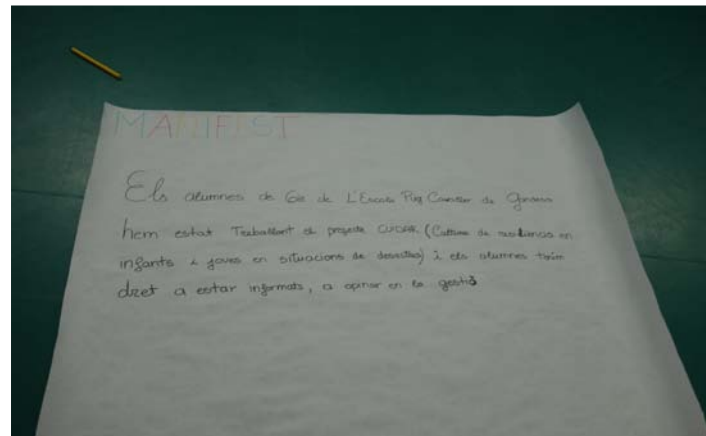 MANIFEST
Els alumnes de 6è de L'Escola Puig Cavaller de Gandesa
hem estat Treballant el projecte CUIDAR (Cultures de resiliència en
infants i joves en situacions de desastres) i els alumnes tenim
dret a estar informats, a opinar en la gestió